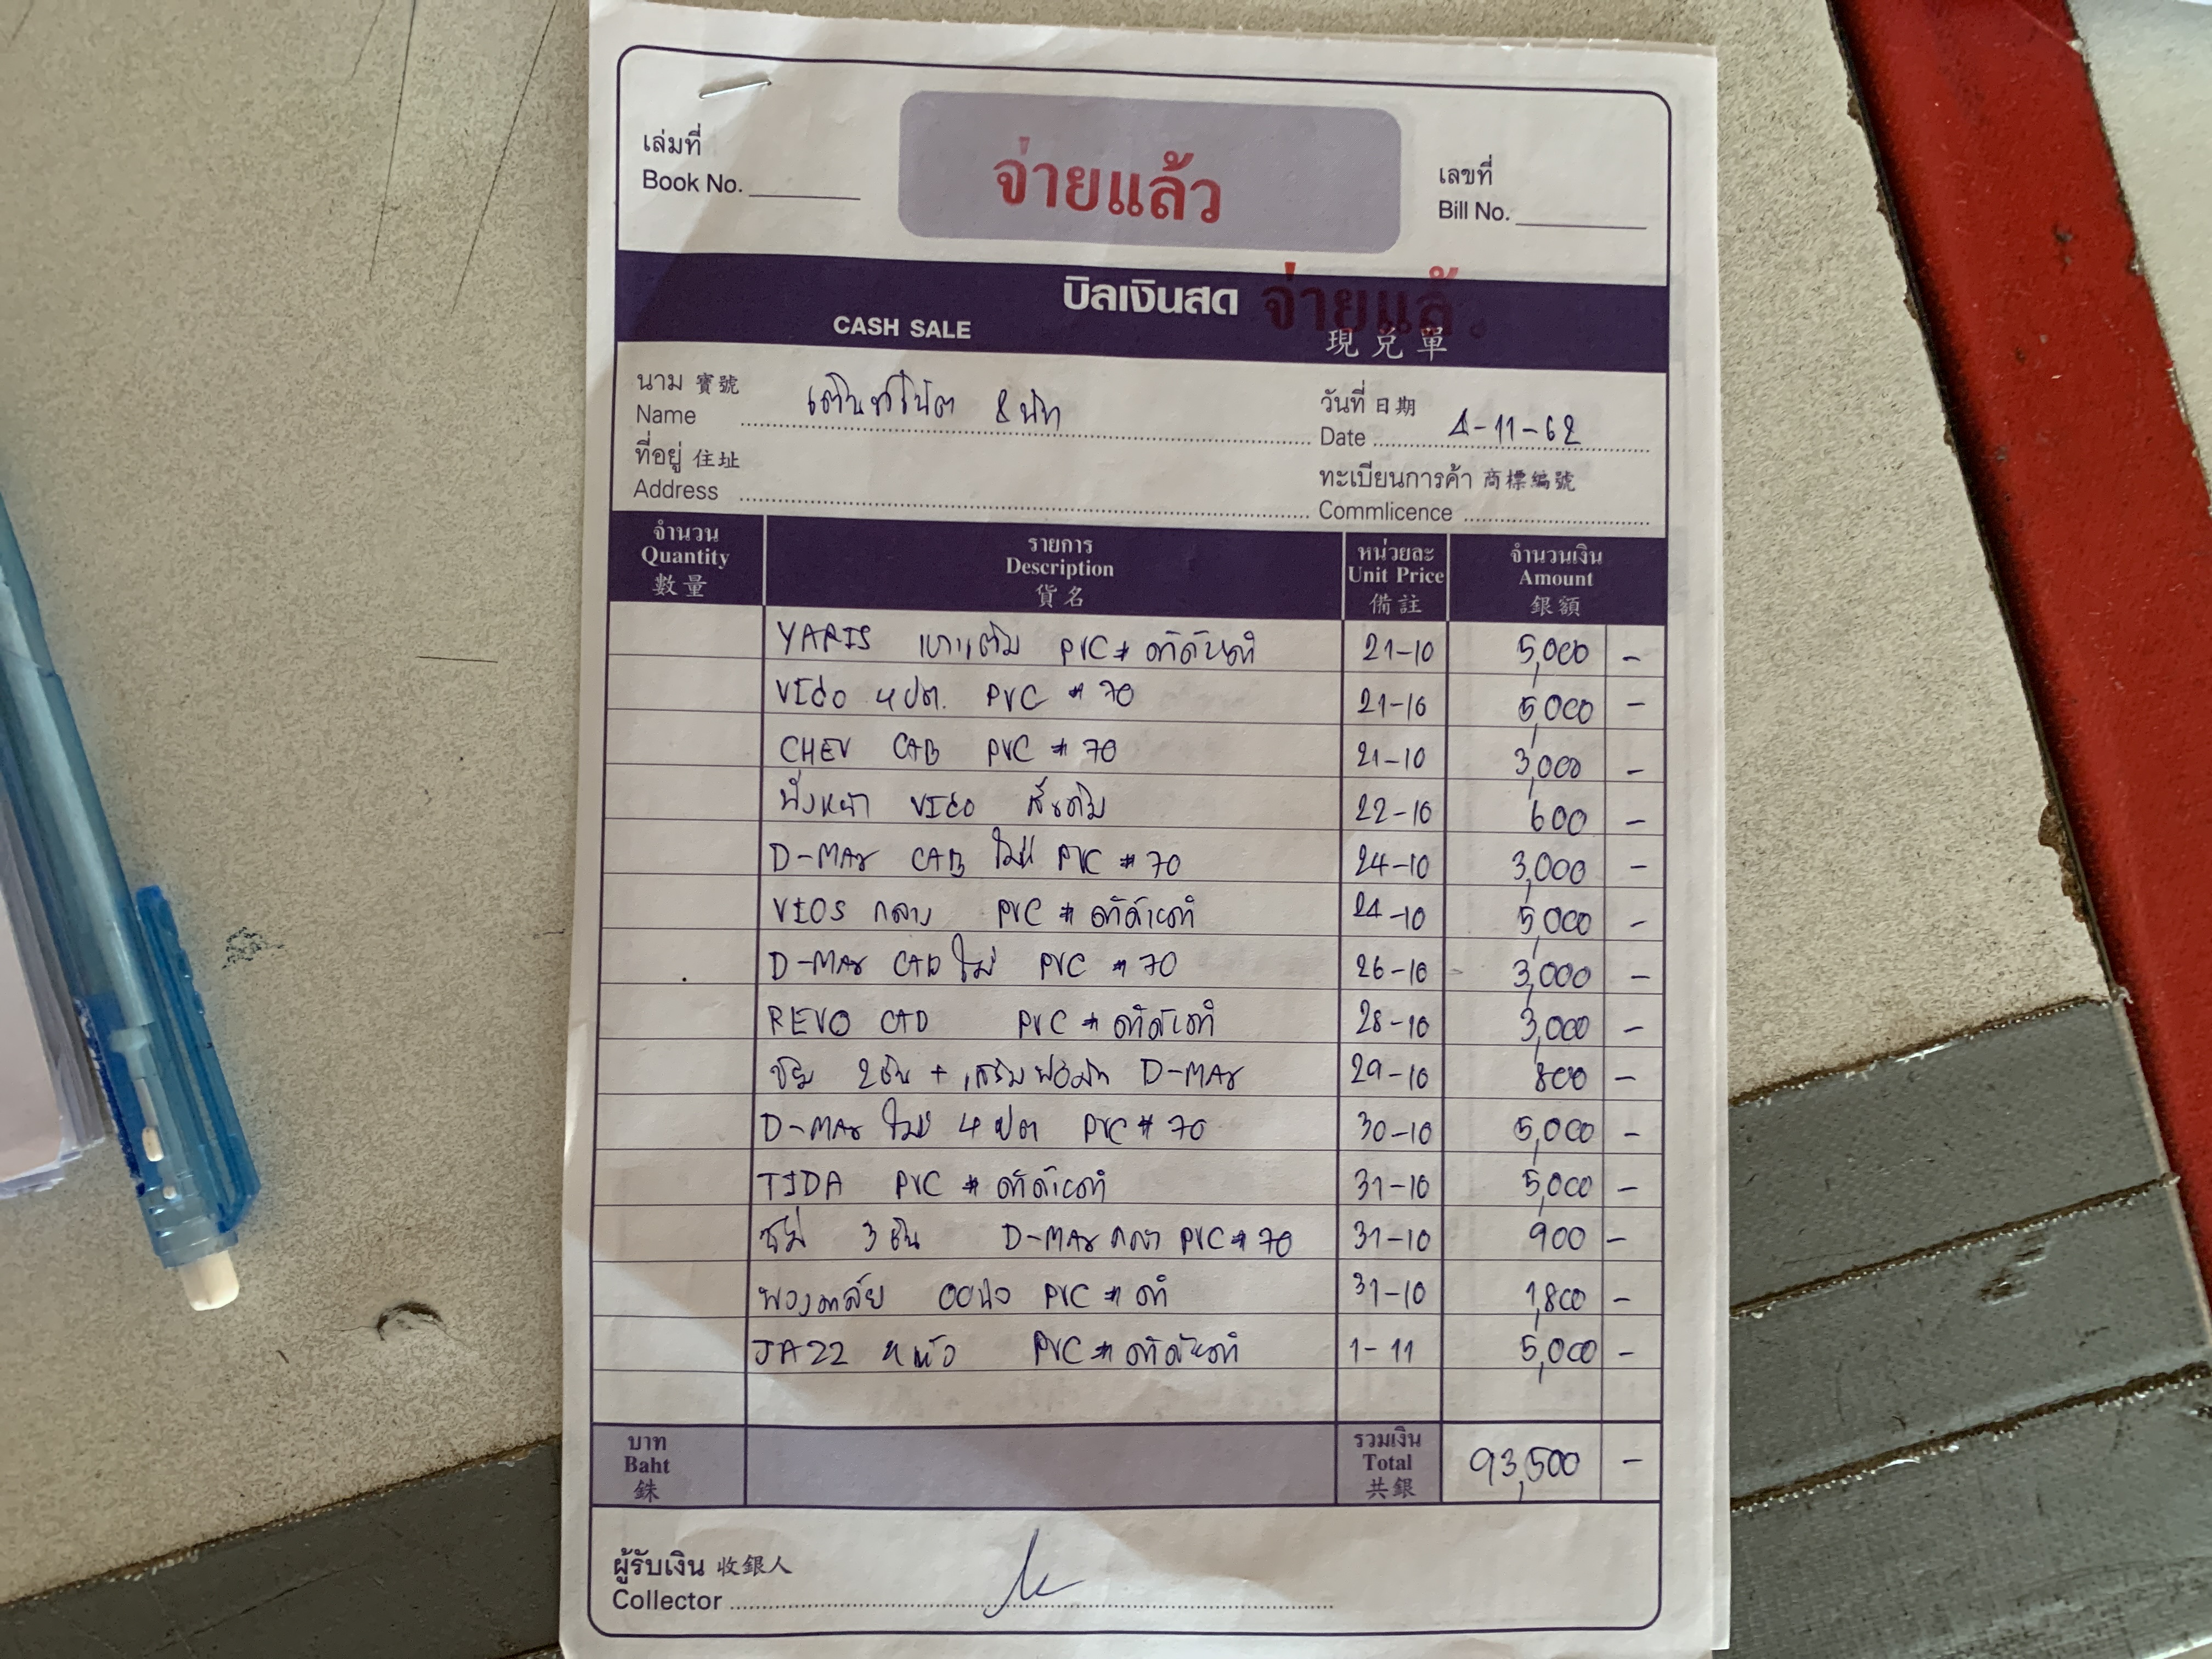 เล่มที่
Book No.
จ่ายแล้ว
เลขที่
Bill No.
บิลเงินสด
จ่ายแล้ว
CASH SALE
現兌單
นาม 寶號
Name
วันที่ 日期
Date 4-11-62
ที่อยู่ 住址
Address
ทะเบียนการค้า 商標編號
Commlicence
จำนวน รายการ หน่วยละ จำนวนเงิน
Quantity Description Unit Price Amount
數量 貨名 備註 銀額
YARIS PVC # ดำด้ายดำ 21-10 5,000 -
VIGO 4 ปต. PVC # 70 21-10 5,000 -
CHEV CAB PVC # 70 21-10 3,000 -
VIGO สีเดิม 22-10 600 -
D-MAX CAB ใหม่ PVC # 70 24-10 3,000 -
VIOS กลาง PVC # ดำด้ายดำ 24-10 5,000 -
D-MAX CAB ใหม่ PVC # 70 26-10 3,000 -
REVO CAB PVC # ดำด้ายดำ 28-10 3,000 -
ซ่อม 2 ชิ้น + เสริมฟองน้ำ D-MAX 29-10 800 -
D-MAX ใหม่ 4 ปต PVC # 70 30-10 5,000 -
TIDA PVC # ดำด้ายดำ 31-10 5,000 -
3 ชิ้น D-MAX กลาง PVC # 70 31-10 900 -
PVC # ดำ 31-10 1,800 -
JAZZ PVC # ดำด้ายดำ 1-11 5,000 -
บาท รวมเงิน
Baht Total 93,500 -
銖 共銀
ผู้รับเงิน 收銀人
Collector